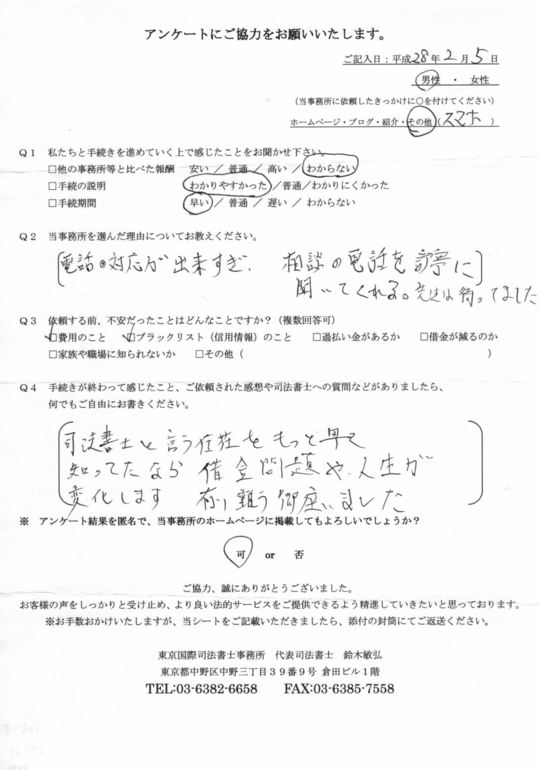 アンケートにご協力をお願いいたします。
ご記入日:平成28年2月5日
男性 ・ 女性
(当事務所に依頼したきっかけに○を付けてください)
ホームページ・ブログ・紹介・その他(スマホ)
Q1 私たちと手続きを進めていく上で感じたことをお聞かせ下さい。
□他の事務所等と比べた報酬 安い / 普通 / 高い / わからない
□手続の説明 わかりやすかった /普通/わかりにくかった
□手続期間 早い / 普通 / 遅い / わからない
Q2 当事務所を選んだ理由についてお教えください。
電話の対応が出来すぎ. 相談の電話を 寧に
聞いてくれる。 は待ってました
Q3 依頼する前、不安だったことはどんなことですか?(複数回答可)
□費用のこと □ブラックリスト(信用情報)のこと □過払い金があるか □借金が減るのか
□家族や職場に知られないか □その他( )
Q4 手続きが終わって感じたこと、ご依頼された感想や司法書士への質問などがありましたら、
何でもご自由にお書きください。
司法書士と言う存在をもっと早く
知ってたなら 借金問題や、人生が
変化します 有り難う御座いました
※ アンケート結果を匿名で、当事務所のホームページに掲載してもよろしいでしょうか?
可 or 否
ご協力、誠にありがとうございました。
お客様の声をしっかりと受け止め、より良い法的サービスをご提供できるよう精進していきたいと思っております。
※お手数おかけいたしますが、当シートをご記載いただきましたら、添付の封筒にてご返送ください。
東京国際司法書士事務所 代表司法書士 鈴木敏弘
東京都中野区中野三丁目39番9号 倉田ビル1階
TEL:03-6382-6658 FAX:03-6385-7558